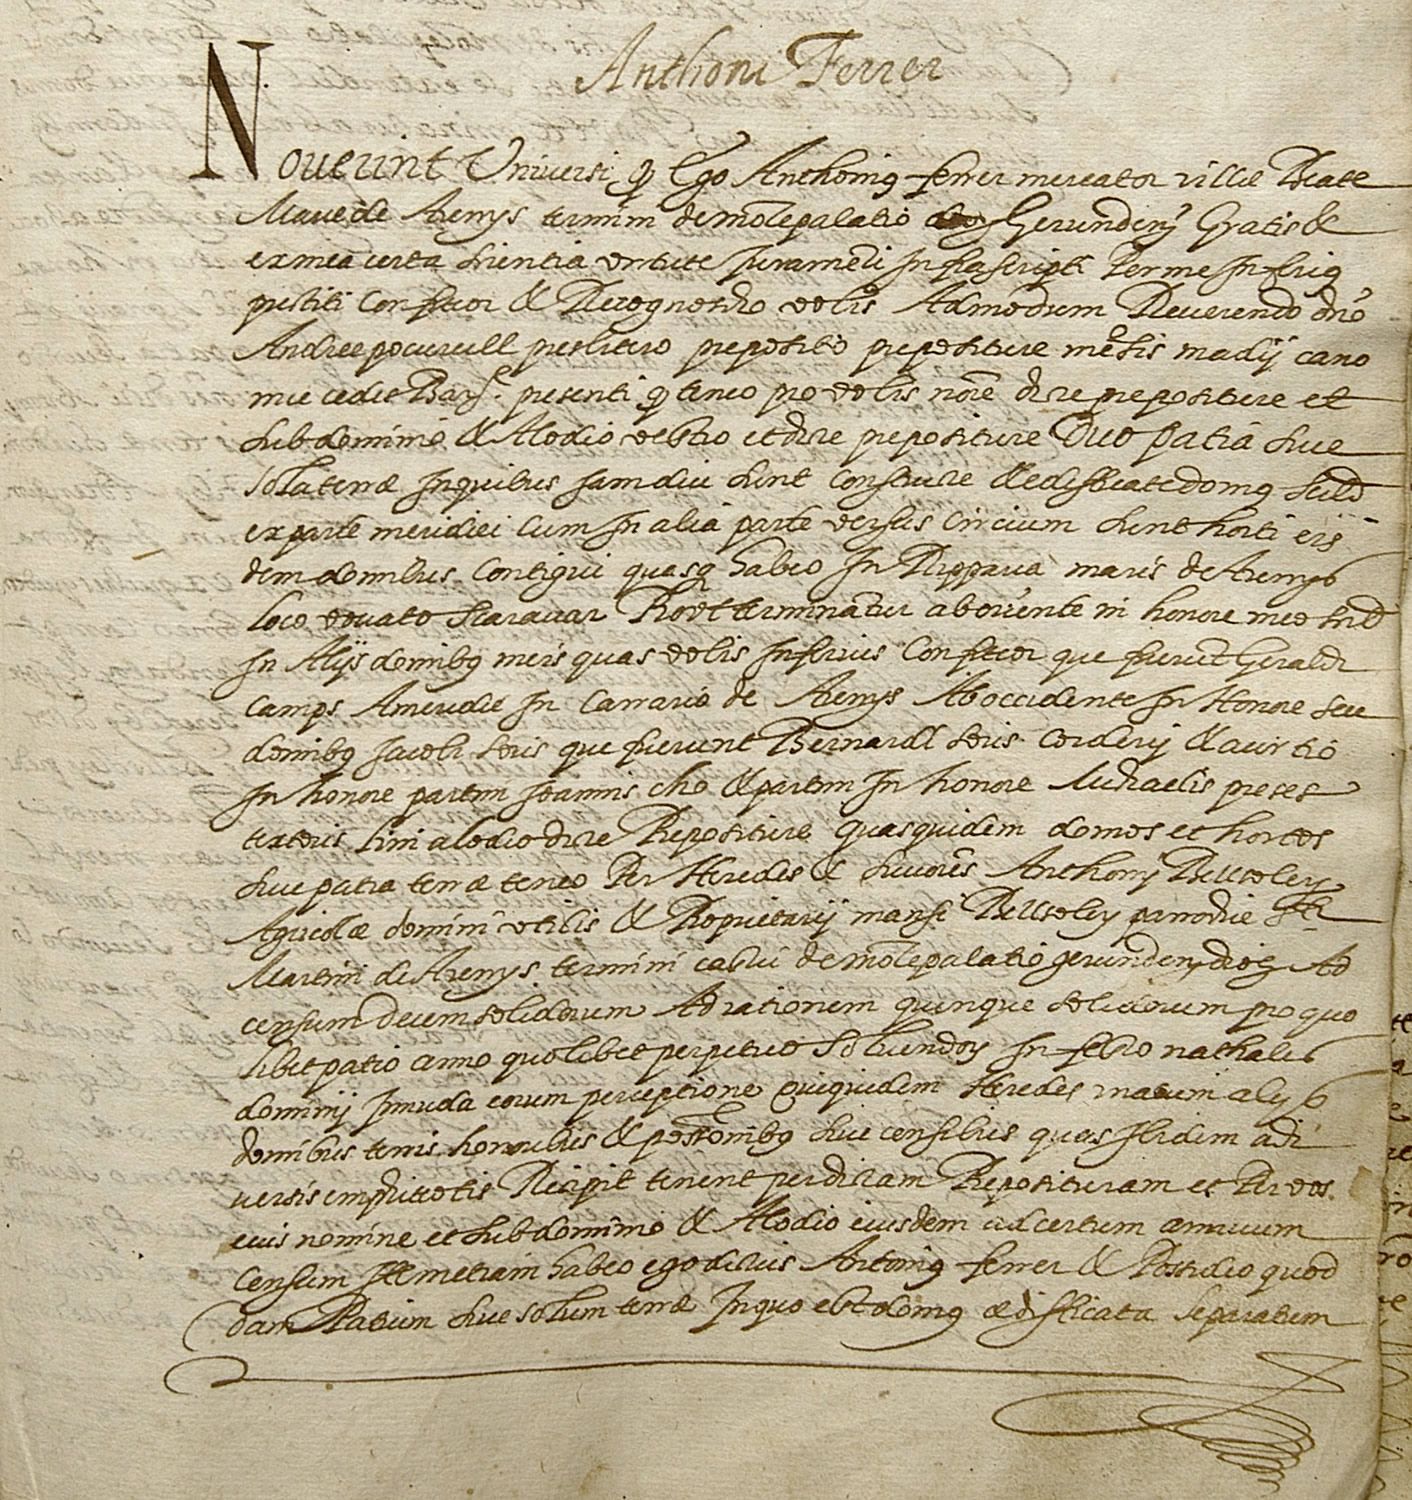 Anthoni Ferrer
Noverint Universi q Ego Anthonius ferrer mercator ville Beate
Marie de Arenys termini de montepalatio Gerunden Gratis &
ex mea certa scientia virtute Juramenti Infrascripti Per me Inferius
prestiti Confiteor & Recognosco vobis Admodum Reverendo dno
Andree pocurull presbitero preposito prepositure mensis madij cano
nice sedis Barc. presenti q teneo pro vobis noie dicte prepositure et
sub dominio & Alodio vestro et dicte prepositure Duo patia sive
sola terræ Inquibus jamdiu sunt Constructe & edifficate domus scilt
ex parte meridiei Cum In alia parte versus Circium sunt horti eis
dem domibus Contigui quasq habeo In Ripparia maris de Arenys
loco vocato Et terminantur ab oriente in honore meo sive
In Alijs domibus meis quas vobis Inferius Confiteor que fuerunt Geraldi
Camps A meridie In Carrario de Arenys Ab occidente In Honore seu
domibus Jacobi que fuerunt Bernardi Corderij & a circio
In honore partim Joannis & partim In honore Michaelis
textoris sini alodio dicte Prepositure Quasquidem domos et hortos
sive patia terræ teneo Per Heredes & successores Anthonij Bellsoley
Agricolæ domini utilis & Proprietarij mansi Bellsoley parrochie Sti
Martini de Arenys termini castri de montepalatio gerunden diocs Ad
censum decem solidorum Ad rationem quinque solidorum pro quo
libet patio anno quolibet perpetuo Solvendos In festo nathalis
domini Innuda eorum perceptione Quiquidem Heredes alijs
domibus terris honoribus & possessionibus sive censibus quas Ibidem a di
versis emphiteotis Recipit tenent per dictam Preposituram et Per vos
eius nomine et sub dominio & Alodio eiusdem ad certum annuum
Censum Item etiam habeo ego dictus Antonius ferrer & Possideo quod
dam Patium sive solum terræ Inquo est domus ædifficata separatum